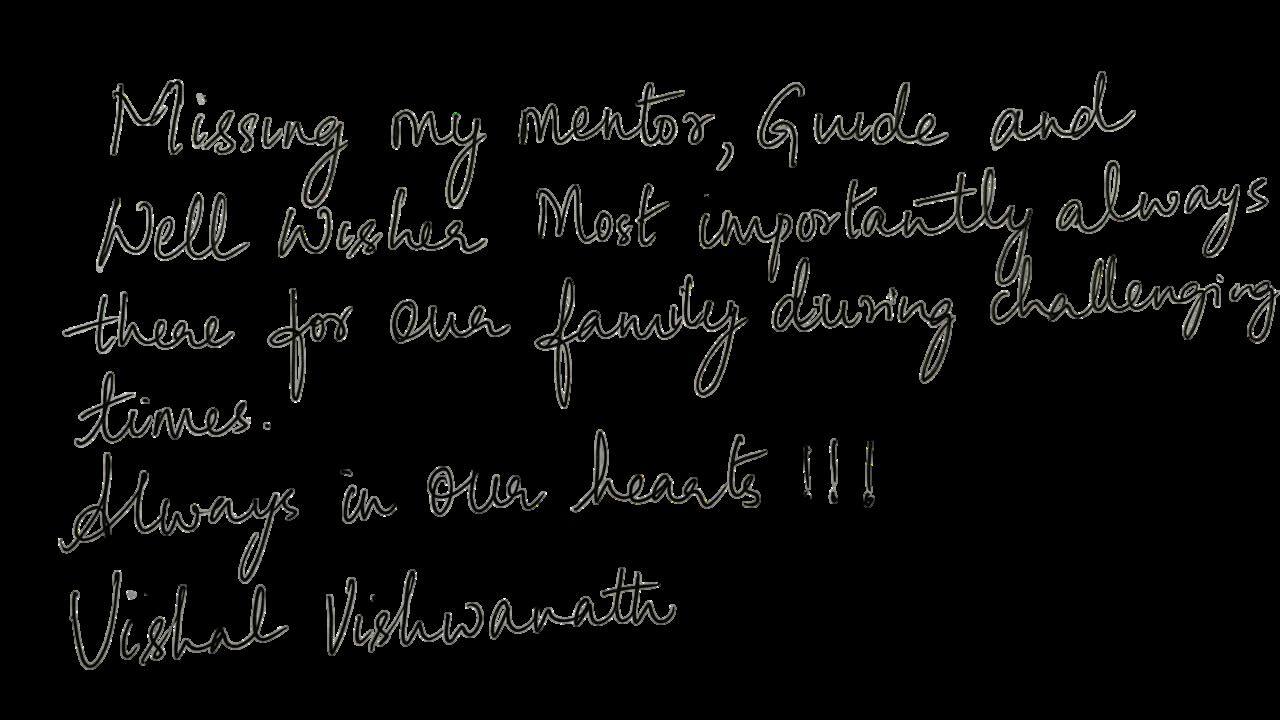 Missing my mentor, Guide and
Well Wisher Most importantly always
there for our family during challenging
times.
Always in our hearts !!!
Vishal Vishwanath